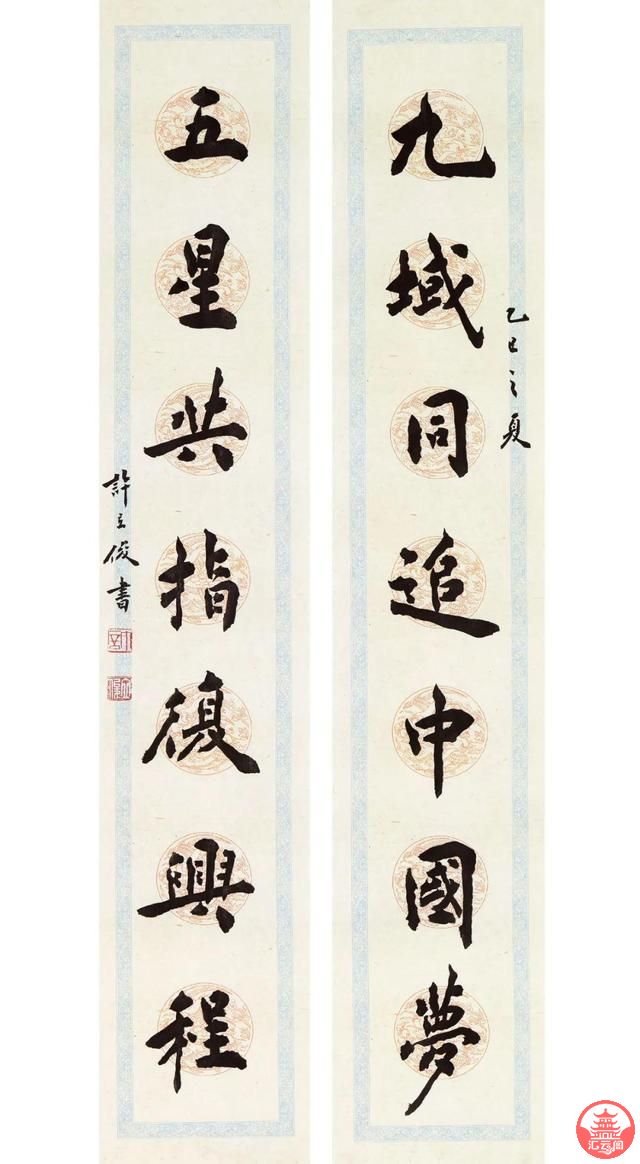 九域同追中國夢
乙巳之夏
五星共指復興程
許立俊書
汇云阁